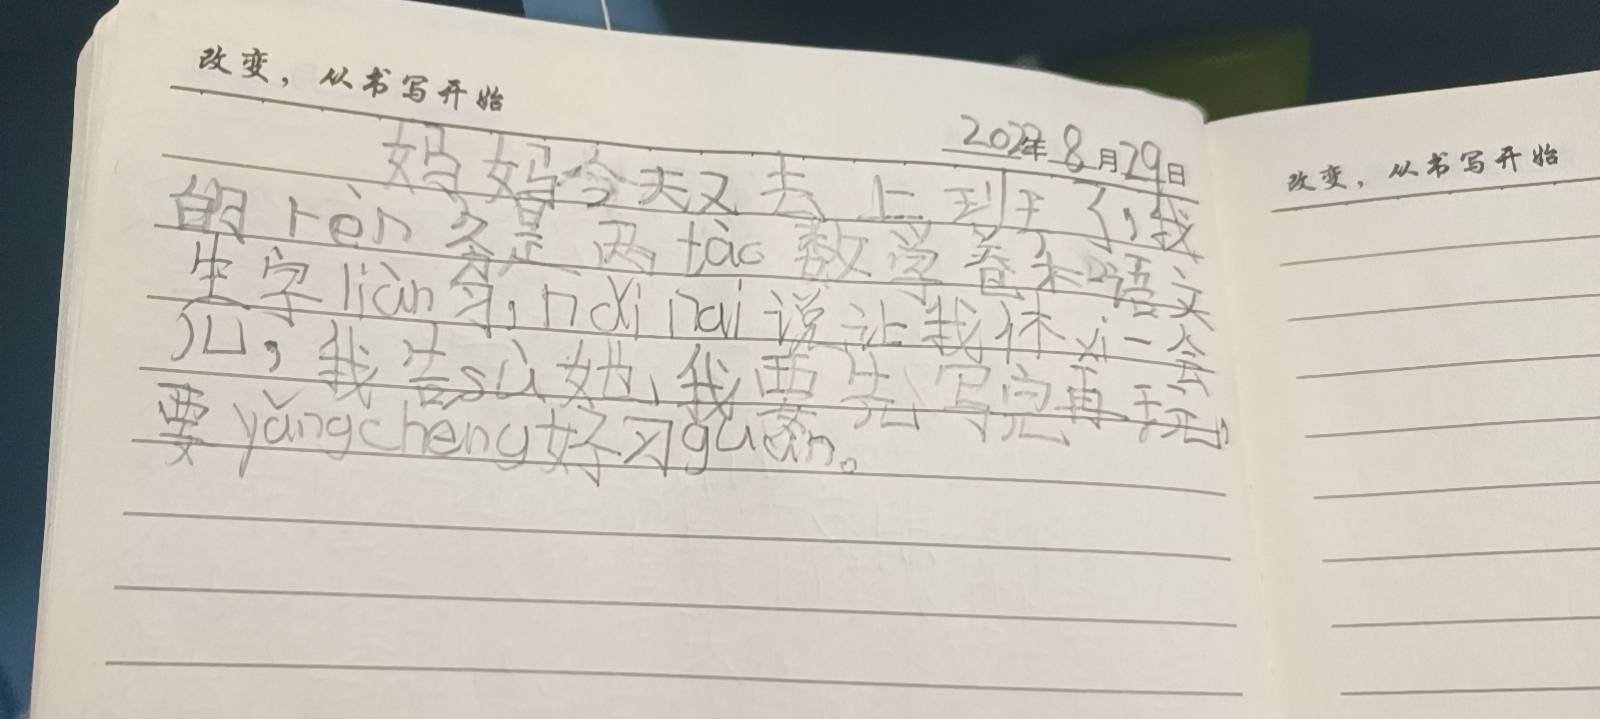 改变，从书写开始
2022年8月29日
妈妈今天又去上班了，我
的rèn务是两tào数学卷和语文
生字liàn习，nǎi nai说让我休xi一会
儿，我告sù她，我要先写完再玩，
要yǎngchéng好习guàn。
改变，从书写开始